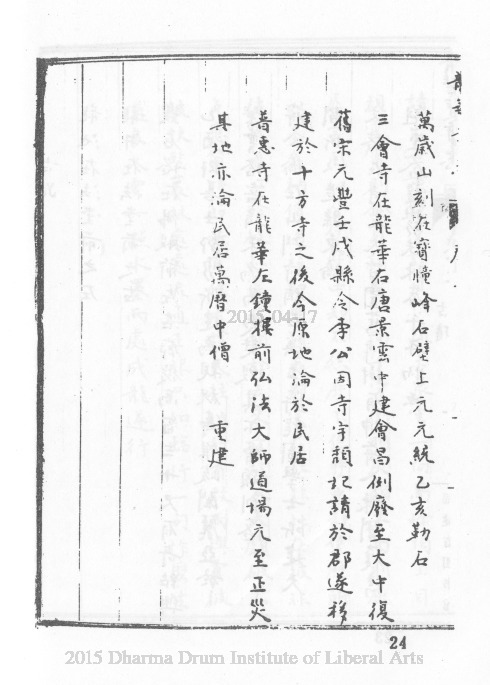 萬歲山刻在寶幢峰石壁上元元統乙亥勒石
三會寺在龍華右唐景雲中建會昌例廢至大中復
舊宋元豐壬戌縣令李公因寺宇頹圮請於郡遂移
建於十方寺之後今原地淪於民居
普惠寺在龍華左鐘樓前弘法大師道場元至正災
其地亦淪民居萬曆中僧 重建
2015-04-17
24
2015 Dharma Drum Institute of Liberal Arts